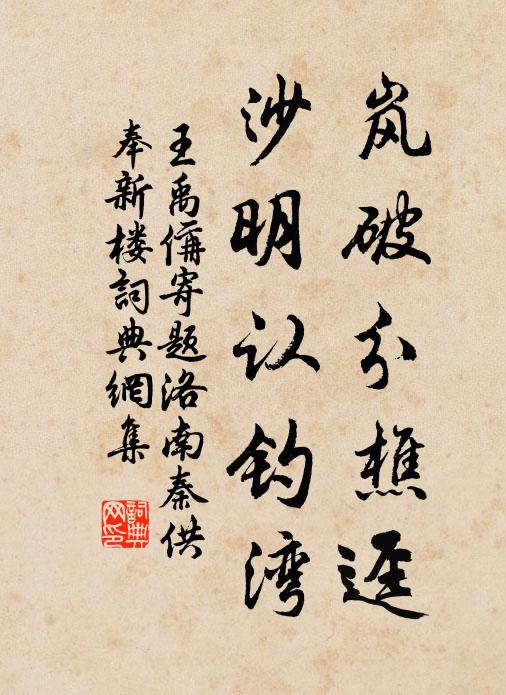 岚破分樵迳
沙明认钓湾
王禹偁寄题洛南秦供
奉新楼詞典網集
詞典
网印